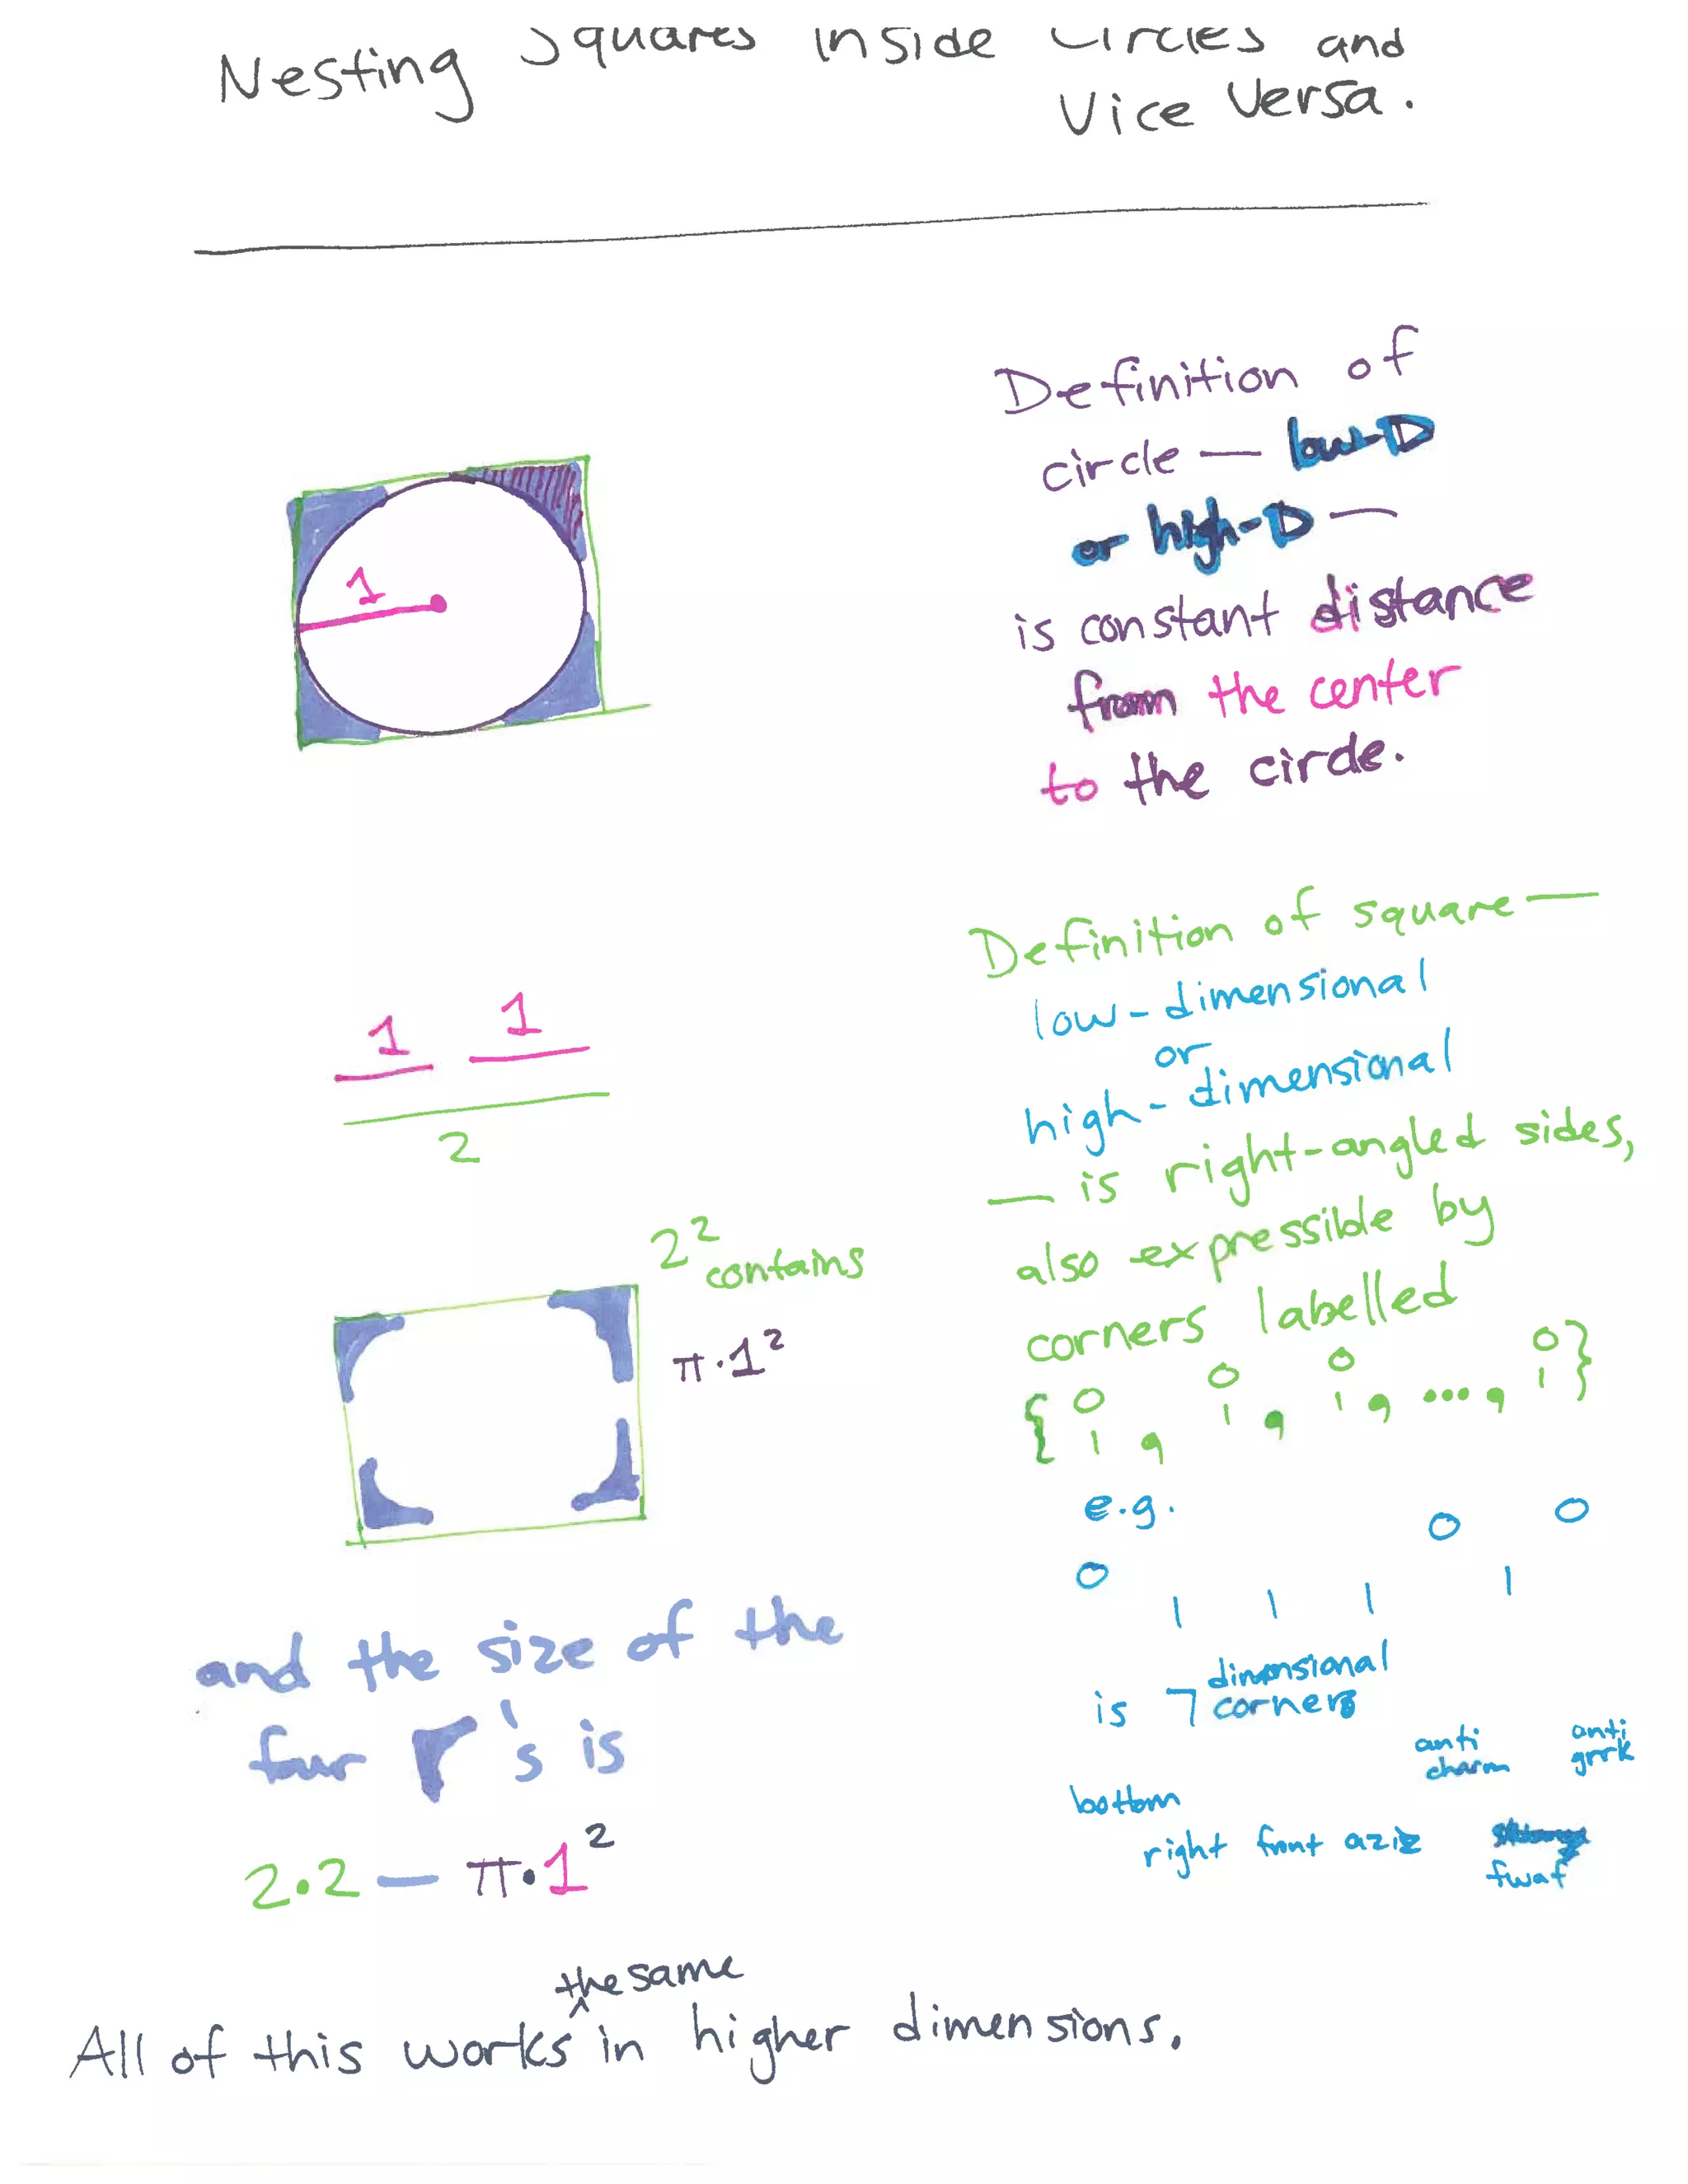 Nesting Squares Inside Circles and
Vice Versa.
Definition of
circle — low-D
or high-D —
is constant distance
from the center
to the circle.
1
Definition of square —
low-dimensional
or
high-dimensional
— is right-angled sides,
also expressible by
corners labelled
{ 0 1 , 0 1 , 0 1 , ... , 0 1 }
e.g.
0 1 1 1 0 1 0
is 7 dimensional
corners
bottom right front aziz anti charm fwaf anti grrk
1 1
2
2² contains
π·1²
and the size of the
four 's is
2·2 — π·1²
the same
All of this works ^ in higher dimensions.